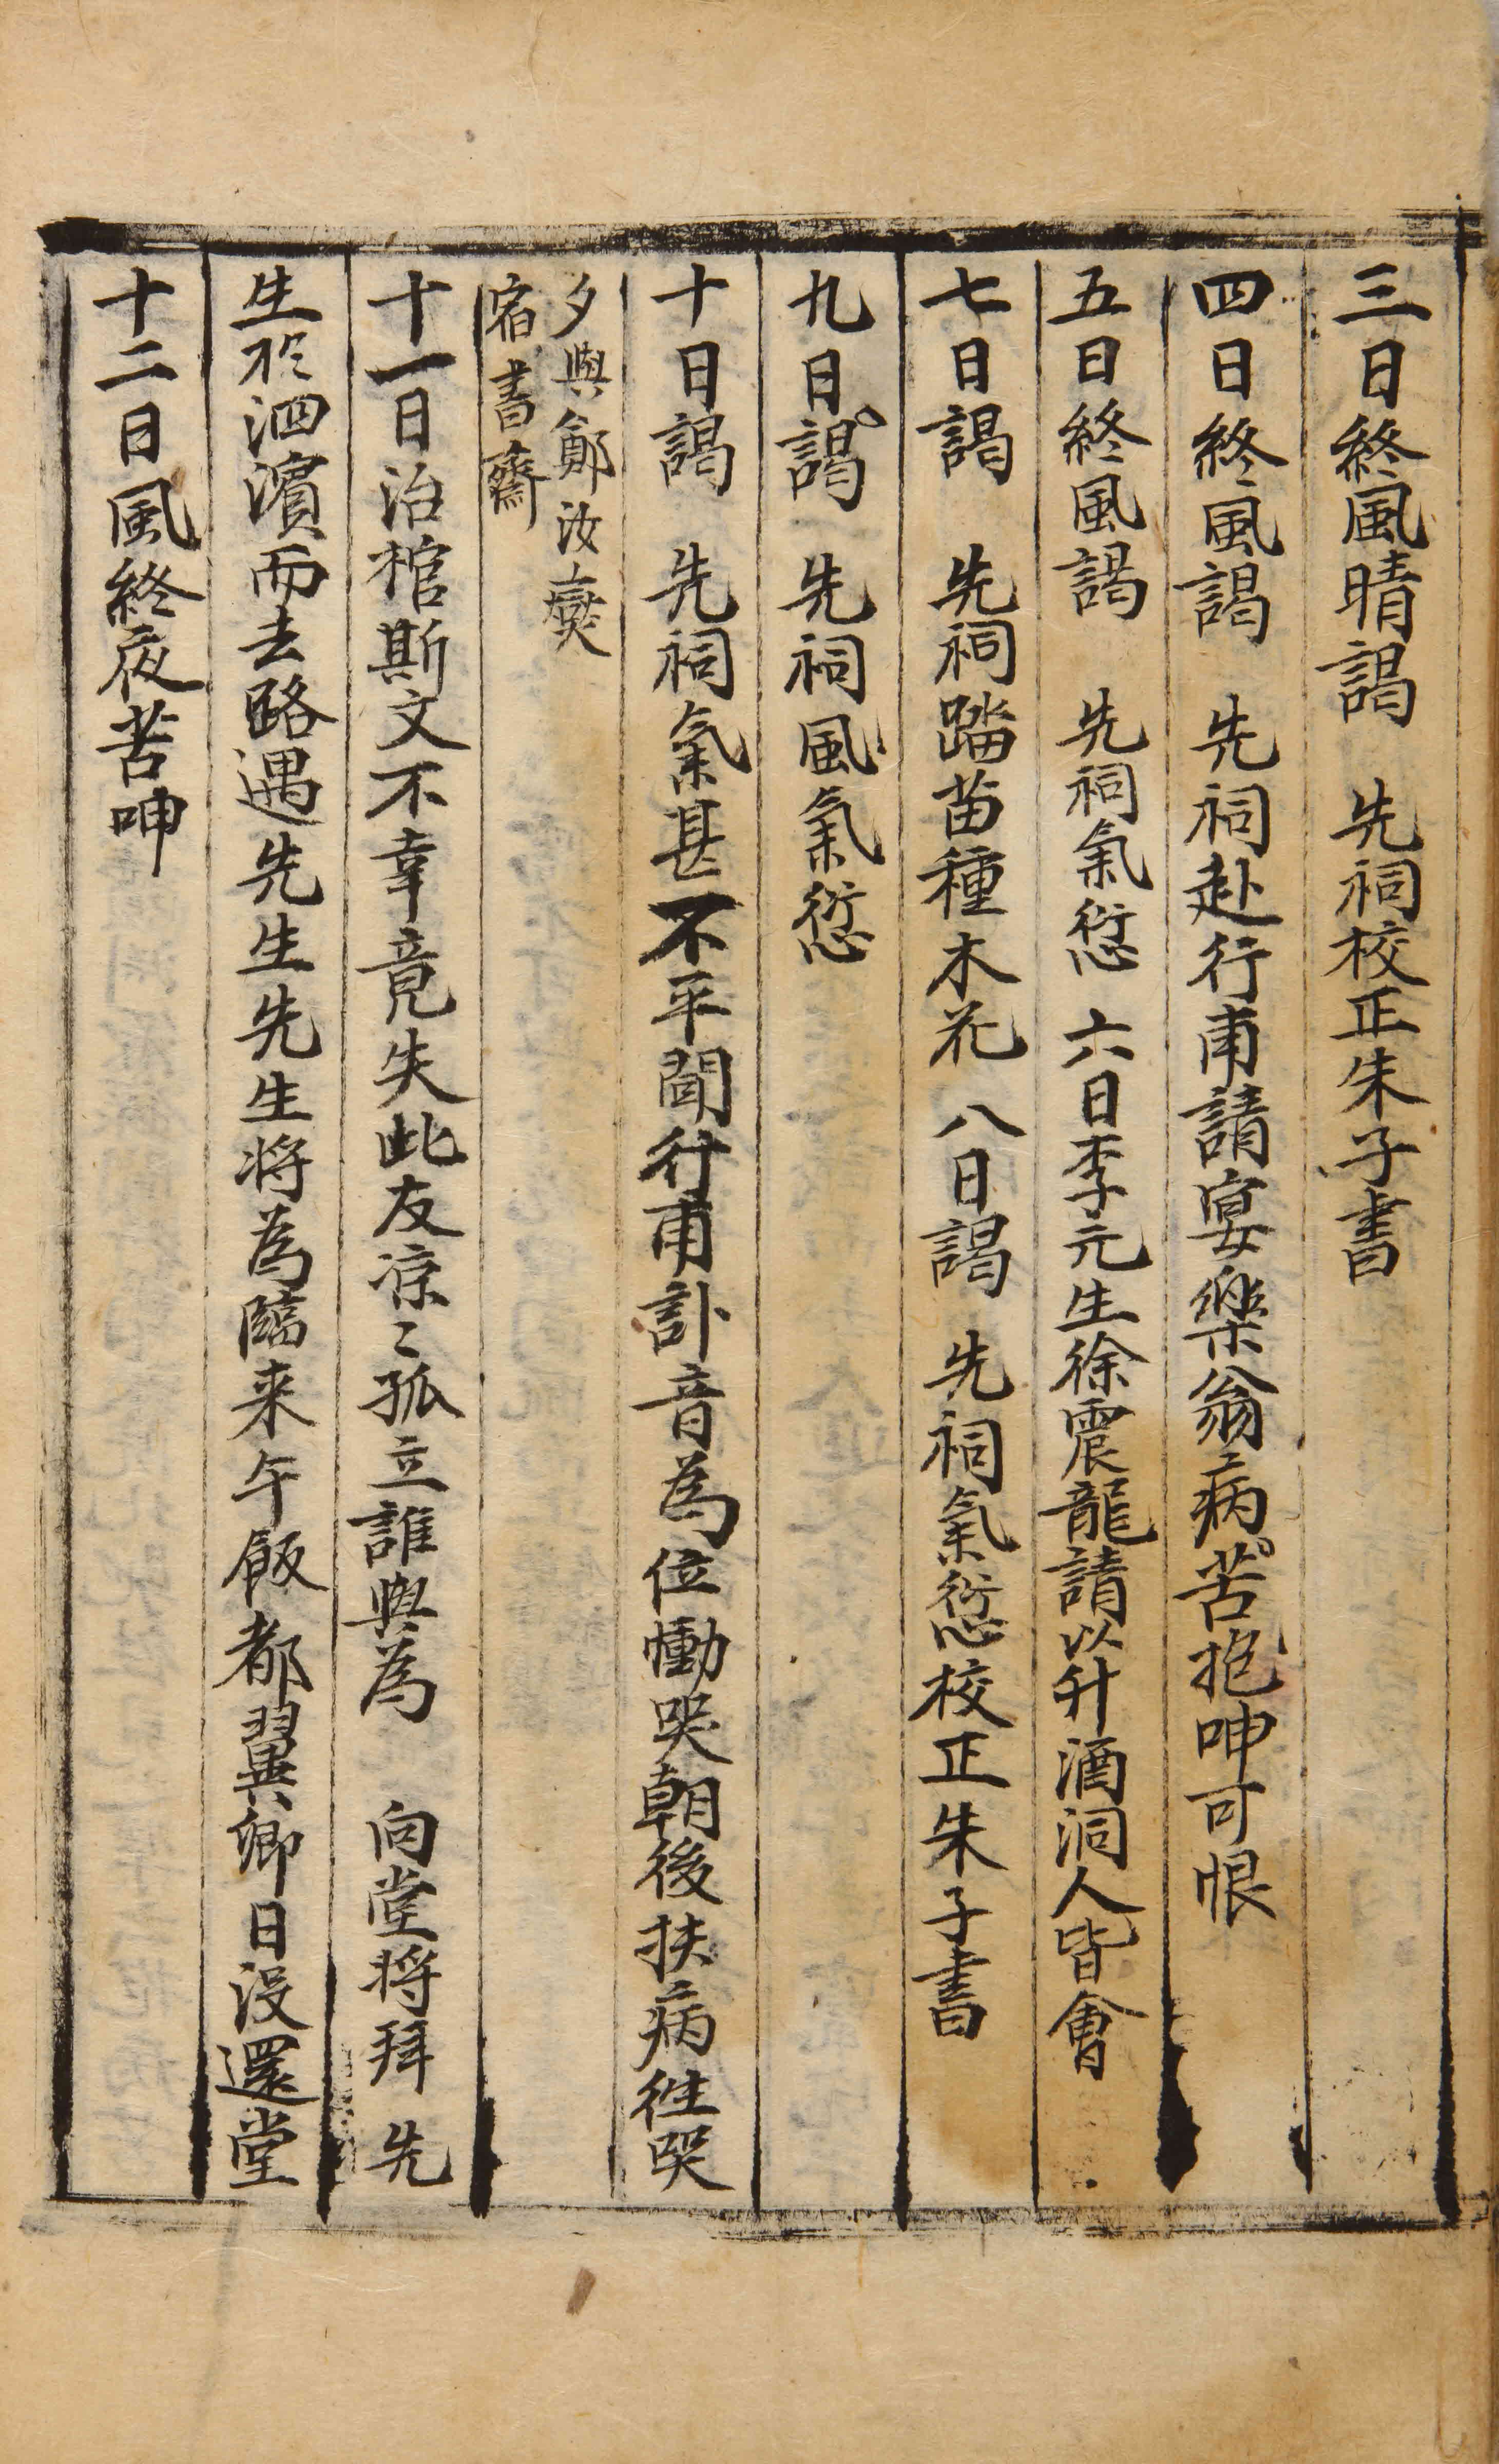 三日終風晴謁　先祠校正朱子書
四日終風謁　先祠赴行甫請宴樂翁病苦抱呻可恨
五日終風謁　先祠氣愆　六日李元生徐震龍請以升酒洞人皆會
七日謁　先祠踏苗種木花　八日謁　先祠氣愆校正朱子書
九日謁　先祠風氣愆
十日謁　先祠氣甚不平聞行甫訃音為位慟哭朝後扶病徃哭
夕與鄭汝爕
宿書齋
十一日治棺斯文不幸竟失此友凉〻孤立誰與為　向堂将拜　先
生於泗濱而去路遇先生先生将為臨来午飯都翼卿日没還堂
十二日風終夜苦呻